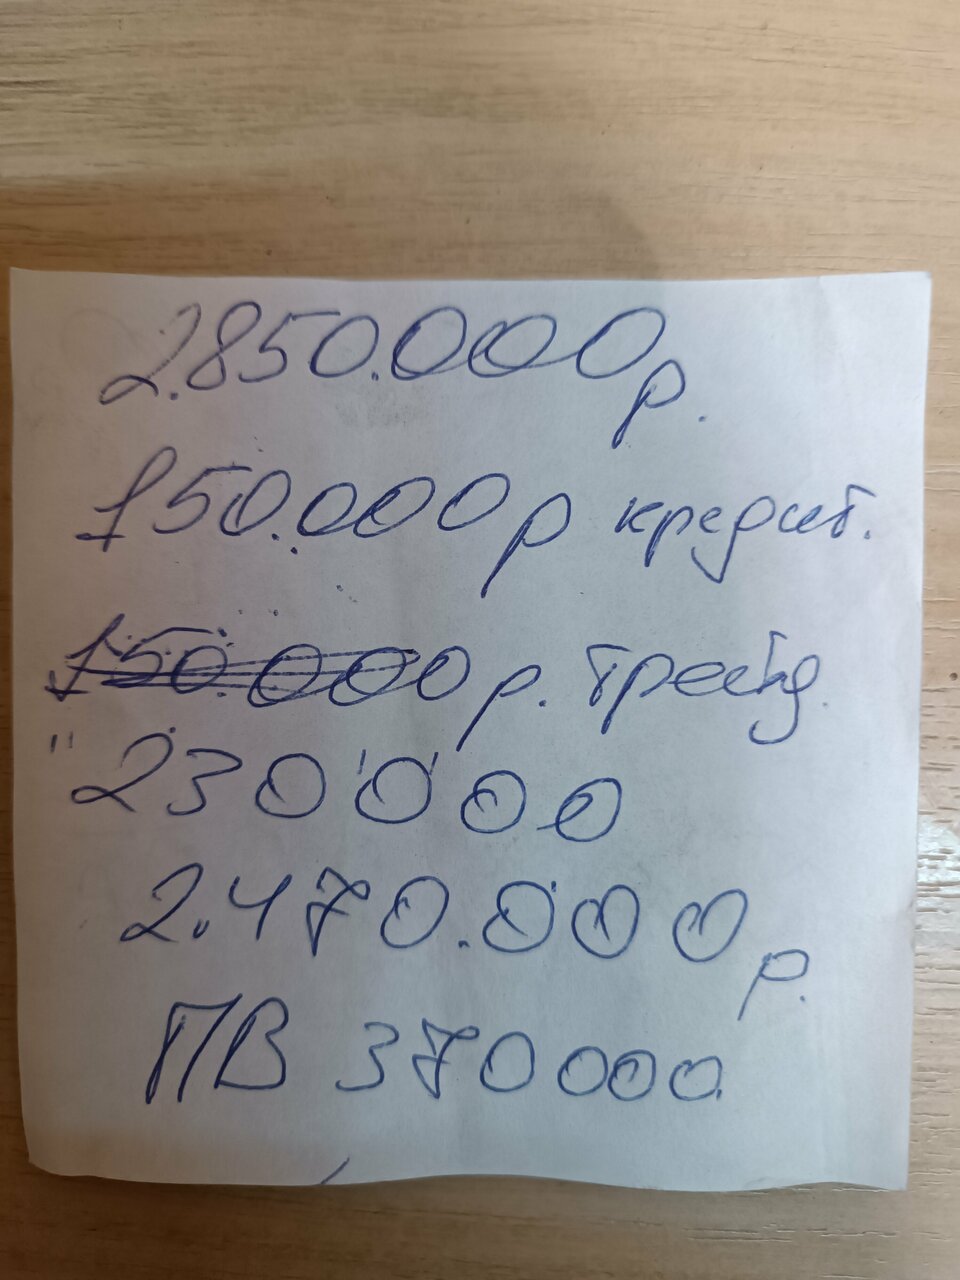 2.850.000р.
150.000р кредит.
150.000р. трейд.
230000
2.470.000р.
ПВ 370000.